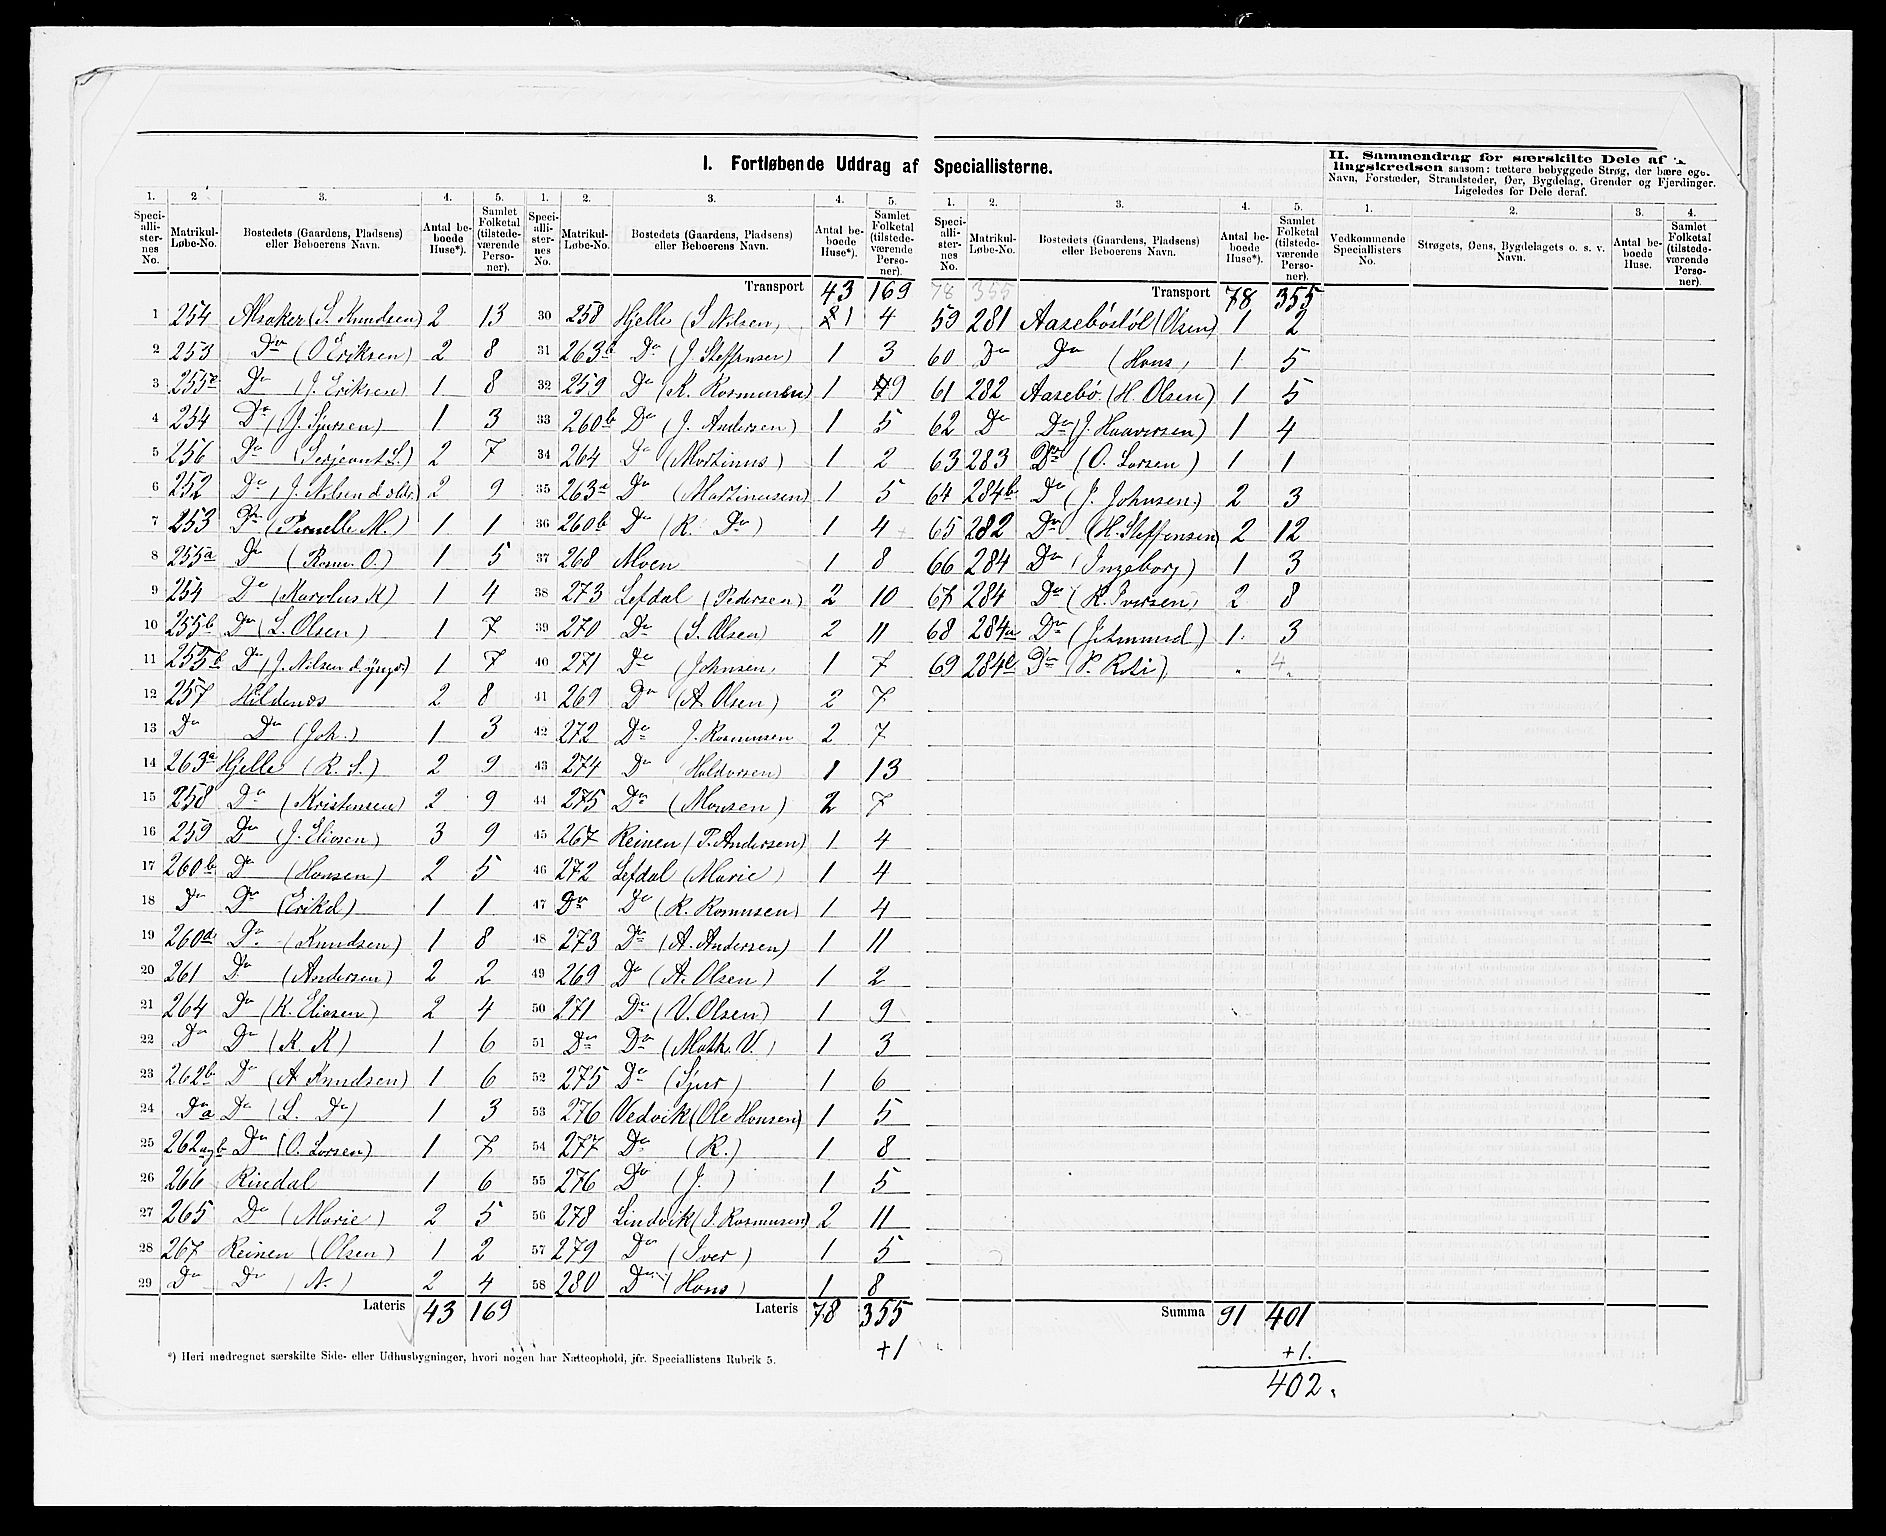 I. Fortløbende Uddrag af Speciallisterne.
II. Sammendrag for særskilte Dele af
lingskredsen sansom: tættere bebyggede Strøg, der bære eget
Navn, Forstæder, Strandsteder, Øer, Bygdelag, Grender og Fjerdinger.
Ligeledes for Dele deraf.
1. 2 3. 4. 5. 1. 2. 3. 4. 5. 1. 2. 3. 4. 5. 1. 2. 3. 4.
Speciallisternes No. Matrikul-Løbe-No. Bostedets (Gaardens, Pladsens) eller Beboerens Navn. Antal beboede Huse*). Samlet Folketal (tilstedeværende Personer).
Speciallisternes No. Matrikul-Løbe-No. Bostedets (Gaardens, Pladsens) eller Beboerens Navn. Antal beboede Huse*). Samlet Folketal (tilstedeværende Personer).
Speciallisternes No. Matrikul-Løbe-No. Bostedets (Gaardens, Pladsens) eller Beboerens Navn. Antal beboede Huse*). Samlet Folketal (tilstedeværende Personer).
Vedkommende Speciallisters No. Strøgets, Øens, Bygdelagets o. s. v. Navn. Antal beboede Huse. Samlet Folketal (tilstedeværende Personer).
1 254 Alsaker (S. Knudsen) 2 13
2 253 Do (O Eriksen) 2 8
3 255c Do (J. Eriksen) 1 8
4 254 Do (J. Sjursen) 1 3
5 256 Do (Serjeant S.) 2 7
6 252 Do (J. Nilsen d. oldr.) 2 9
7 253 Do (Pernelle M.) 1 1
8 255a Do (Rasm. O.) 1 5
9 254 Do (Karolus K) 1 4
10 255b Do (L. Olsen) 1 7
11 255b Do (J. Nilsen d. yngr.) 1 7
12 257 Hildenes 2 8
13 Do Do (Joh.) 1 3
14 263a Hjelle (R. S.) 2 9
15 258 Do (Kristensen) 2 9
16 259 Do (J. Eliasen) 3 9
17 260b Do (Hansen) 2 5
18 Do Do (Erikd) 1 1
19 260d Do (Knudsen) 1 8
20 261 Do (Andersen) 2 2
21 264 Do (K. Eliasen) 2 4
22 Do Do (K. K) 1 6
23 262b Do (A Knudsen) 1 6
24 Do a Do (L. Do) 1 3
25 262a,b Do (O. Larsen) 1 7
26 266 Rindal 1 6
27 265 Do (Marie) 2 5
28 267 Reinen (Olsen) 1 2
29 Do Do (A.) 2 4
Lateris 43 169
Transport 43 169
30 258 Hjelle (S Nilsen) 1 4
31 263b Do (J Steffensen) 1 3
32 259 Do (K. Rasmussen) 1 9
33 260b Do (J. Andersen) 1 5
34 264 Do (Martinus) 1 2
35 263a Do (Martinusen) 1 5
36 260b Do (R. Do) 1 4
37 268 Moen 1 8
38 273 Lefdal (Pedersen) 2 10
39 270 Do (S. Olsen) 2 11
40 271 Do (Johnsen) 1 7
41 269 Do (A Olsen) 2 7
42 272 Do J. Rasmusen 2 7
43 274 Do Haldorsen) 1 13
44 275 Do (Monsen) 2 7
45 267 Reinen (P. Andersen) 1 4
46 272 Lefdal (Marie) 1 4
47 Do Do (R. Rasmusen) 1 4
48 273 Do (A. Andersen) 1 11
49 269 Do (A. Olsen) 1 2
50 271 Do (V. Olsen) 1 9
51 Do Do (Math. V.) 1 3
52 275 Do (Sjur) 1 6
53 276 Vedvik (Ole Hansen) 1 5
54 277 Do (R.) 1 8
55 276 Do (J.) 1 5
56 278 Lindvik (J. Rasmusen) 2 11
57 279 Do (Iver) 1 5
58 280 Do (Hans) 1 8
Lateris 78 355
+1
78 355 Transport 78 355
59 281 Aaseböstöl (Olsen) 1 2
60 Do Do (Hans) 1 5
61 282 Aasebö (H. Olsen) 1 5
62 Do Do (J. Haaversen) 1 4
63 283 Do (O. Larsen) 1 1
64 284b Do (J. Johnsen) 2 3
65 282 Do (H. Steffensen) 2 12
66 284 Do (Ingeborg) 1 3
67 284 Do (R. Iversen) 2 8
68 284a Do (J. Amund) 1 3
69 284c Do (P. Rosi) " 4
Summa 91 401
+1.
402.
*) Heri medregnet særskilte Side- eller Udhusbygninger, hvori nogen har Natteophold, jfr. Speciallistens Rubrik 5.